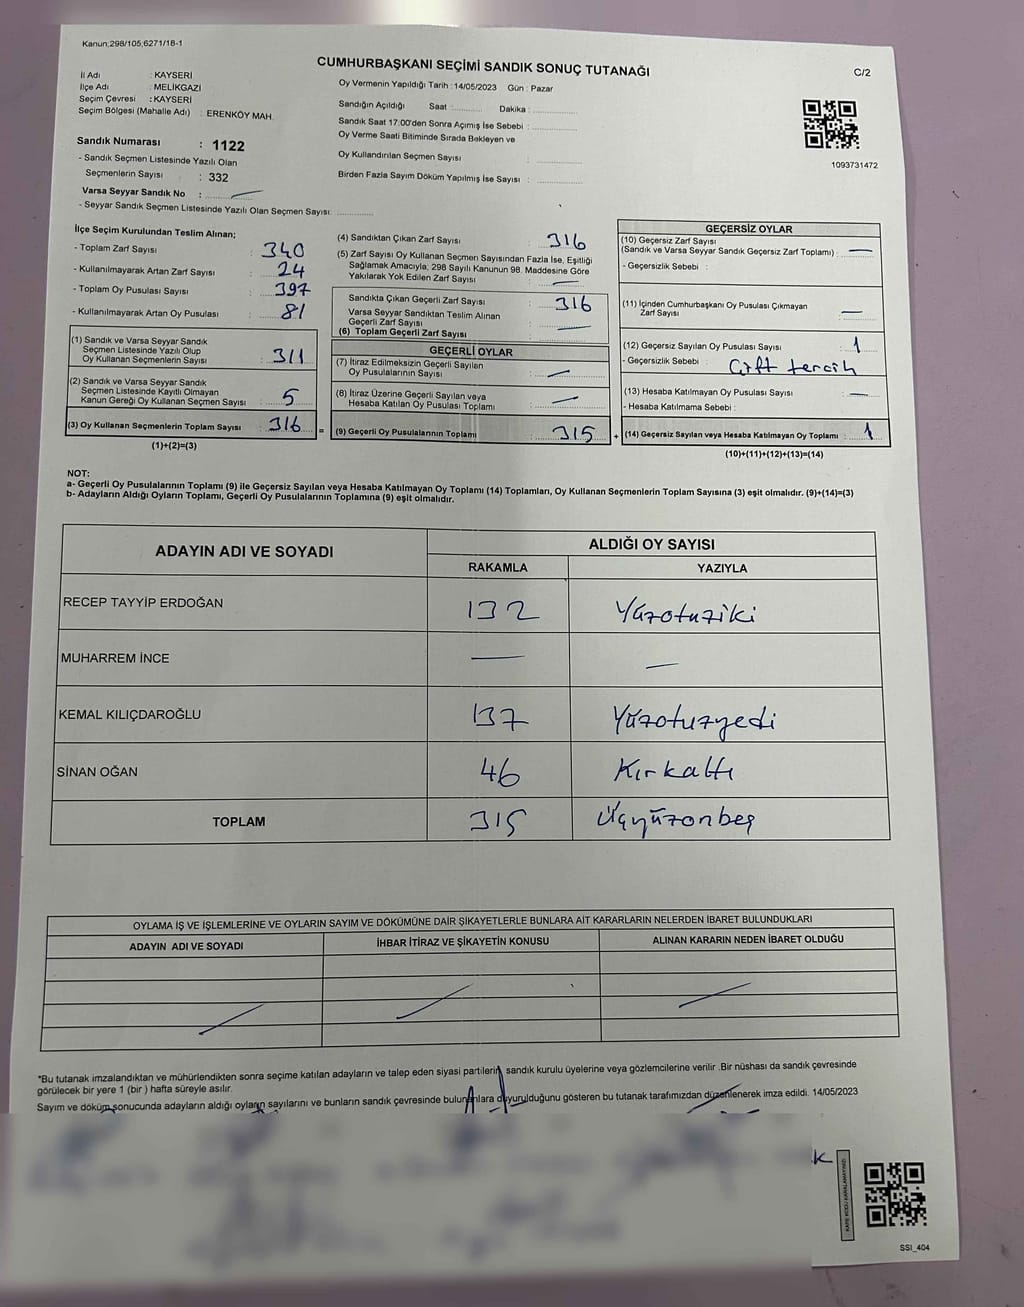 Kanun;298/105;6271/18-1
CUMHURBAŞKANI SEÇİMİ SANDIK SONUÇ TUTANAĞI
C/2
İl Adı : KAYSERİ
İlçe Adı : MELİKGAZİ
Seçim Çevresi : KAYSERİ
Seçim Bölgesi (Mahalle Adı) : ERENKÖY MAH.
Sandık Numarası : 1122
- Sandık Seçmen Listesinde Yazılı Olan
Seçmenlerin Sayısı : 332
Varsa Seyyar Sandık No : —
- Seyyar Sandık Seçmen Listesinde Yazılı Olan Seçmen Sayısı:
Oy Vermenin Yapıldığı Tarih : 14/05/2023 Gün : Pazar
Sandığın Açıldığı Saat : Dakika :
Sandık Saat 17:00'den Sonra Açımış İse Sebebi :
Oy Verme Saati Bitiminde Sırada Bekleyen ve
Oy Kullandırılan Seçmen Sayısı :
Birden Fazla Sayım Döküm Yapılmış İse Sayısı :
1093731472
İlçe Seçim Kurulundan Teslim Alınan;
- Toplam Zarf Sayısı : 340
- Kullanılmayarak Artan Zarf Sayısı : 24
- Toplam Oy Pusulası Sayısı : 397
- Kullanılmayarak Artan Oy Pusulası : 81
(1) Sandık ve Varsa Seyyar Sandık
Seçmen Listesinde Yazılı Olup
Oy Kullanan Seçmenlerin Sayısı : 311
(2) Sandık ve Varsa Seyyar Sandık
Seçmen Listesinde Kayıtlı Olmayan
Kanun Gereği Oy Kullanan Seçmen Sayısı : 5
(3) Oy Kullanan Seçmenlerin Toplam Sayısı : 316
(1)+(2)=(3)
(4) Sandıktan Çıkan Zarf Sayısı : 316
(5) Zarf Sayısı Oy Kullanan Seçmen Sayısından Fazla İse, Eşitliği
Sağlamak Amacıyla; 298 Sayılı Kanunun 98. Maddesine Göre
Yakılarak Yok Edilen Zarf Sayısı : —
Sandıkta Çıkan Geçerli Zarf Sayısı : 316
Varsa Seyyar Sandıktan Teslim Alınan
Geçerli Zarf Sayısı : —
(6) Toplam Geçerli Zarf Sayısı :
GEÇERLİ OYLAR
(7) İtiraz Edilmeksizin Geçerli Sayılan
Oy Pusulalarının Sayısı : —
(8) İtiraz Üzerine Geçerli Sayılan veya
Hesaba Katılan Oy Pusulası Toplamı : —
= (9) Geçerli Oy Pusulalarının Toplamı : 315
GEÇERSİZ OYLAR
(10) Geçersiz Zarf Sayısı
(Sandık ve Varsa Seyyar Sandık Geçersiz Zarf Toplamı) : —
- Geçersizlik Sebebi :
(11) İçinden Cumhurbaşkanı Oy Pusulası Çıkmayan
Zarf Sayısı : —
(12) Geçersiz Sayılan Oy Pusulası Sayısı : 1
- Geçersizlik Sebebi : Çift tercih
(13) Hesaba Katılmayan Oy Pusulası Sayısı : —
- Hesaba Katılmama Sebebi :
+ (14) Geçersiz Sayılan veya Hesaba Katılmayan Oy Toplamı : 1
(10)+(11)+(12)+(13)=(14)
NOT:
a- Geçerli Oy Pusulalarının Toplamı (9) ile Geçersiz Sayılan veya Hesaba Katılmayan Oy Toplamı (14) Toplamları, Oy Kullanan Seçmenlerin Toplam Sayısına (3) eşit olmalıdır. (9)+(14)=(3)
b- Adayların Aldığı Oyların Toplamı, Geçerli Oy Pusulalarının Toplamına (9) eşit olmalıdır.
ADAYIN ADI VE SOYADI
ALDIĞI OY SAYISI
RAKAMLA YAZIYLA
RECEP TAYYİP ERDOĞAN 132 Yüzotuziki
MUHARREM İNCE — —
KEMAL KILIÇDAROĞLU 137 Yüzotuzyedi
SİNAN OĞAN 46 Kırkaltı
TOPLAM 315 Üçyüzonbeş
OYLAMA İŞ VE İŞLEMLERİNE VE OYLARIN SAYIM VE DÖKÜMÜNE DAİR ŞİKAYETLERLE BUNLARA AİT KARARLARIN NELERDEN İBARET BULUNDUKLARI
ADAYIN ADI VE SOYADI İHBAR İTİRAZ VE ŞİKAYETİN KONUSU ALINAN KARARIN NEDEN İBARET OLDUĞU
*Bu tutanak imzalandıktan ve mühürlendikten sonra seçime katılan adayların ve talep eden siyasi partilerin sandık kurulu üyelerine veya gözlemcilerine verilir .Bir nüshası da sandık çevresinde
görülecek bir yere 1 (bir ) hafta süreyle asılır.
Sayım ve döküm sonucunda adayların aldığı oyların sayılarını ve bunların sandık çevresinde bulunanlara duyurulduğunu gösteren bu tutanak tarafımızdan düzenlenerek imza edildi. 14/05/2023
KARE KODU KARALAMAYINIZ!
SSI_404